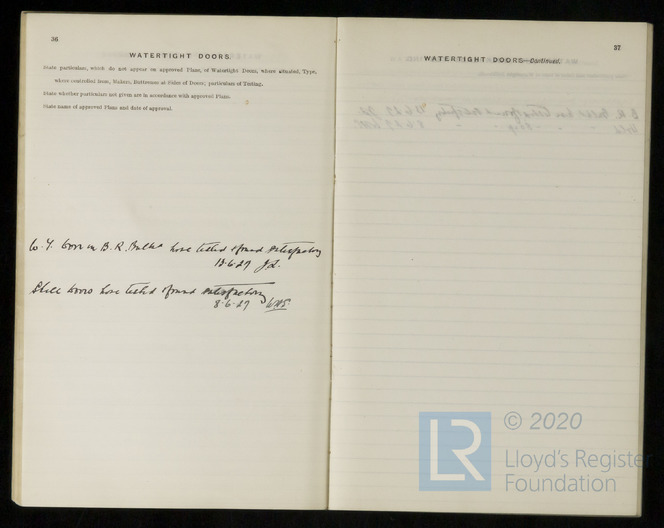 36
WATERTIGHT DOORS.
State particulars, which do not appear on approved Plans, of Watertight Doors, where situated, Type,
where controlled from, Makers, Buttresses at Sides of Doors; particulars of Testing.
State whether particulars not given are in accordance with approved Plans.
State name of approved Plans and date of approval.
W.T. Door in B.R. Bulkhd hose tested & found satisfactory
13-6-27
Shell Doors hose tested & found satisfactory
8-6-27
37
WATERTIGHT DOORS—Continued.
© 2020
LR
Lloyd's Register
Foundation